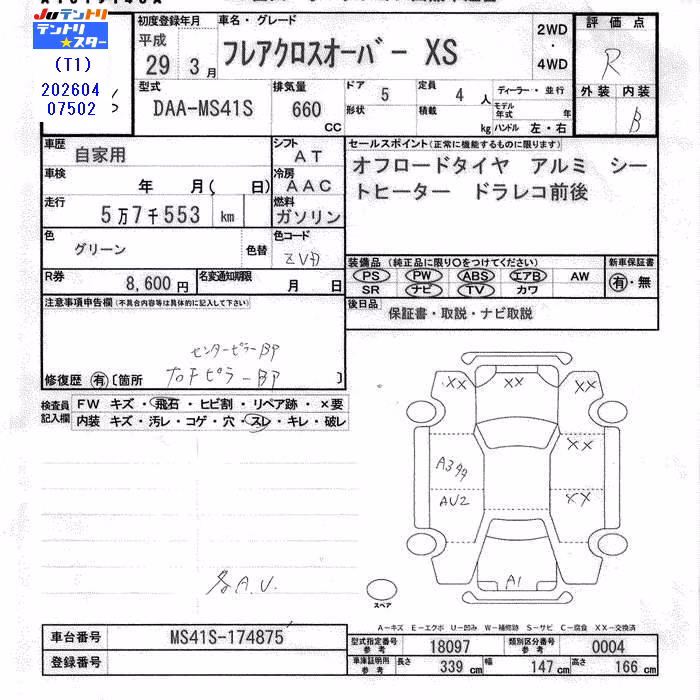 Juテントリ
テントリ
スター
(T1)
202604
07502
初度登録年月
平成
29 3 月
車名・グレード
フレアクロスオーバー XS
2WD
・
4WD
評価点
R
外装 内装
B
型式
DAA-MS41S
排気量
660
CC
ドア
5
定員
4 人
形状
積載
kg
ディーラー・並行
モデル年式 年
ハンドル 左・右
車歴
自家用
シフト
AT
車検
年 月( 日)
冷房
AAC
走行
5万7千553 km
燃料
ガソリン
色
グリーン
色替
色コード
ZVD
R券
8,600円
名変通知期限
月 日
セールスポイント(正常に機能するものに限ります)
オフロードタイヤ アルミ シー
トヒーター ドラレコ前後
装備品(純正品に限り○をつけてください)
PS PW ABS エアB AW
SR ナビ TV カワ
新車保証書
有・無
後日品
保証書・取説・ナビ取説
注意事項申告欄(不具合内容等は具体的に記入して下さい)
センターピラーBP
修復歴 有〔箇所
ピラーBP
〕
検査員
記入欄
FW キズ・飛石・ヒビ割・リペア跡・×要
内装 キズ・汚レ・コゲ・穴・スレ・キレ・破レ
XX
XX
XX
XX
XX
A3
AU2
A1
A.U.
スペア
A―キズ E―エクボ U―凹み W―補修跡 S―サビ C―腐食 XX―交換済
車台番号
MS41S-174875
登録番号
型式指定番号
参考
18097
類別区分番号
参考
0004
車庫証明用
参考
長さ
339 cm
幅
147 cm
高さ
166 cm